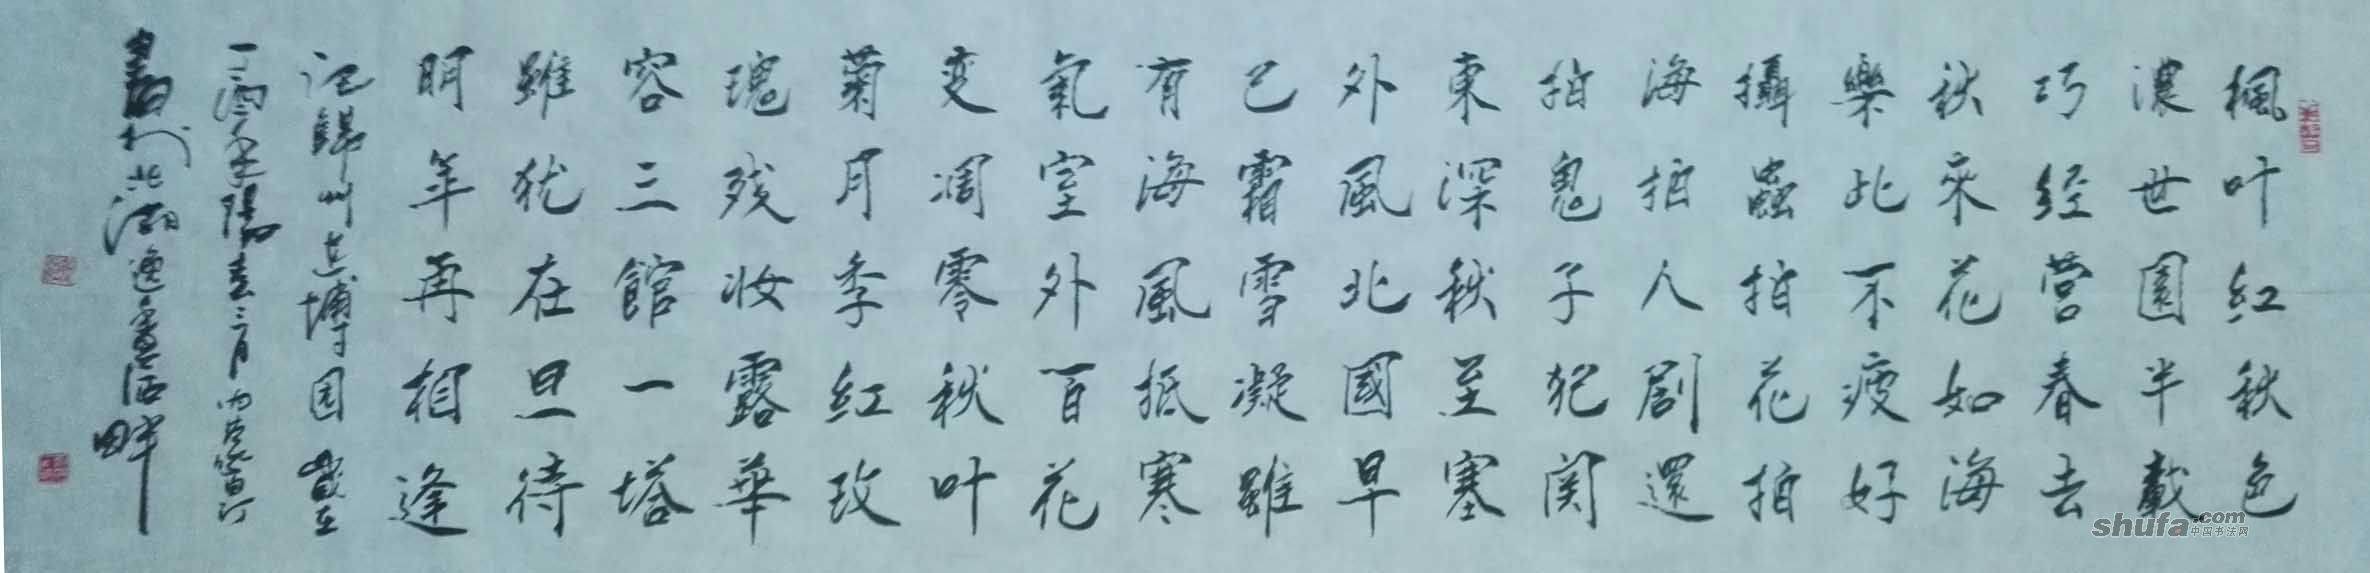 楓叶红秋色
濃世園半載
巧经营春去
秋來花如海
樂此不疲好
攝蟲拍花拍
海拍人剧還
拍鬼子犯関
東深秋至塞
外風北國早
已霜雪凝雖
有海風抵寒
氣室外百花
变凋零秋叶
菊月季红玫
瑰残妆露華
容三館一塔
雖犹在旦待
明年再相逢
记錦州世博园
三月
北湖
畔
shufa.com
中国书法网